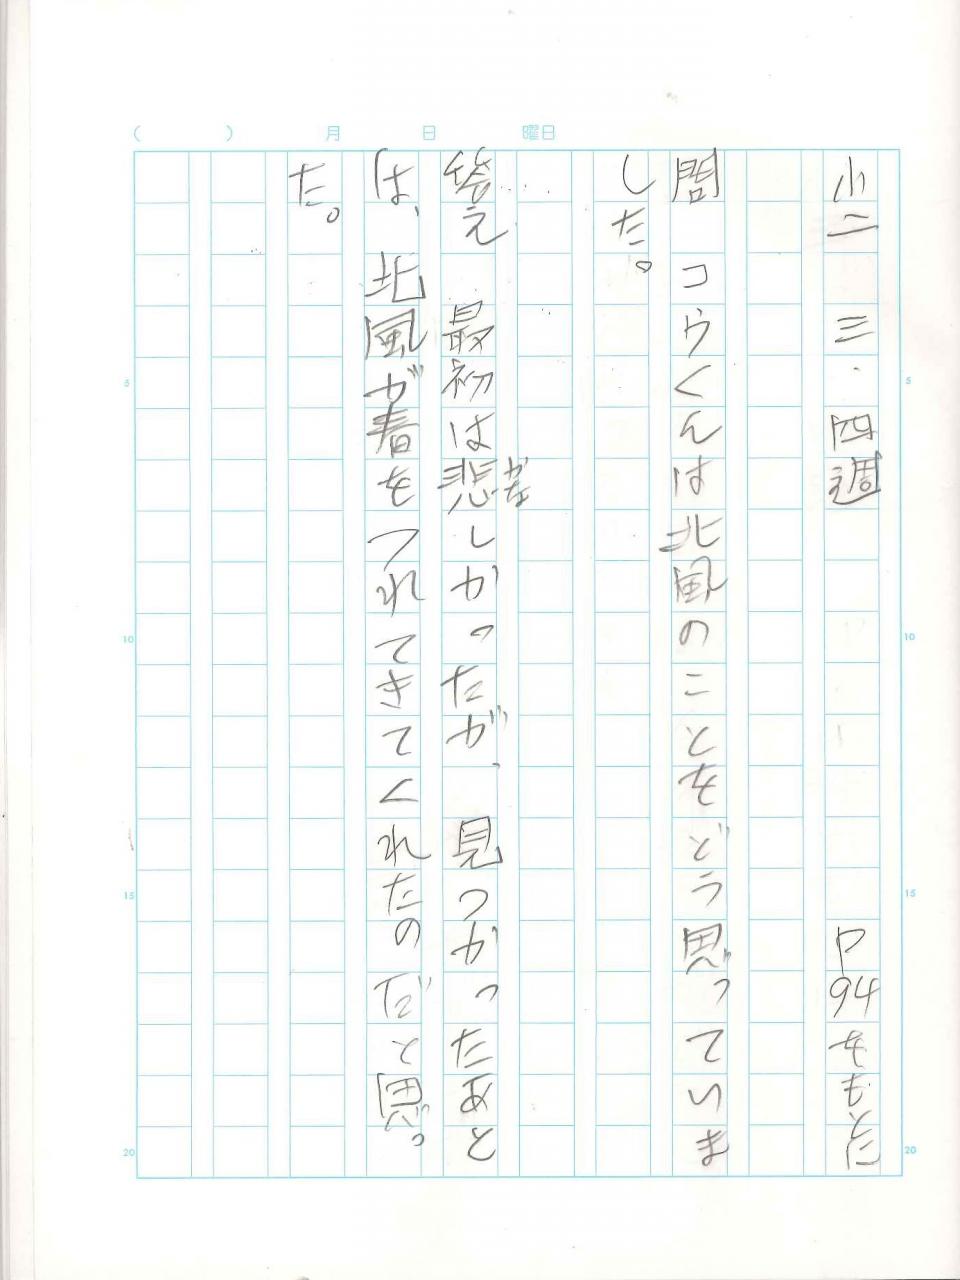 ( ) 月 日 曜日
小二 三・四週 P94をもとに
問 コウくんは北風のことをどう思っていま
した。
答え 最初は悲しかったが、見つかったあと
かな
は、北風が春をつれてきてくれたのだと思っ
た。
5
10
15
20
5
10
15
20